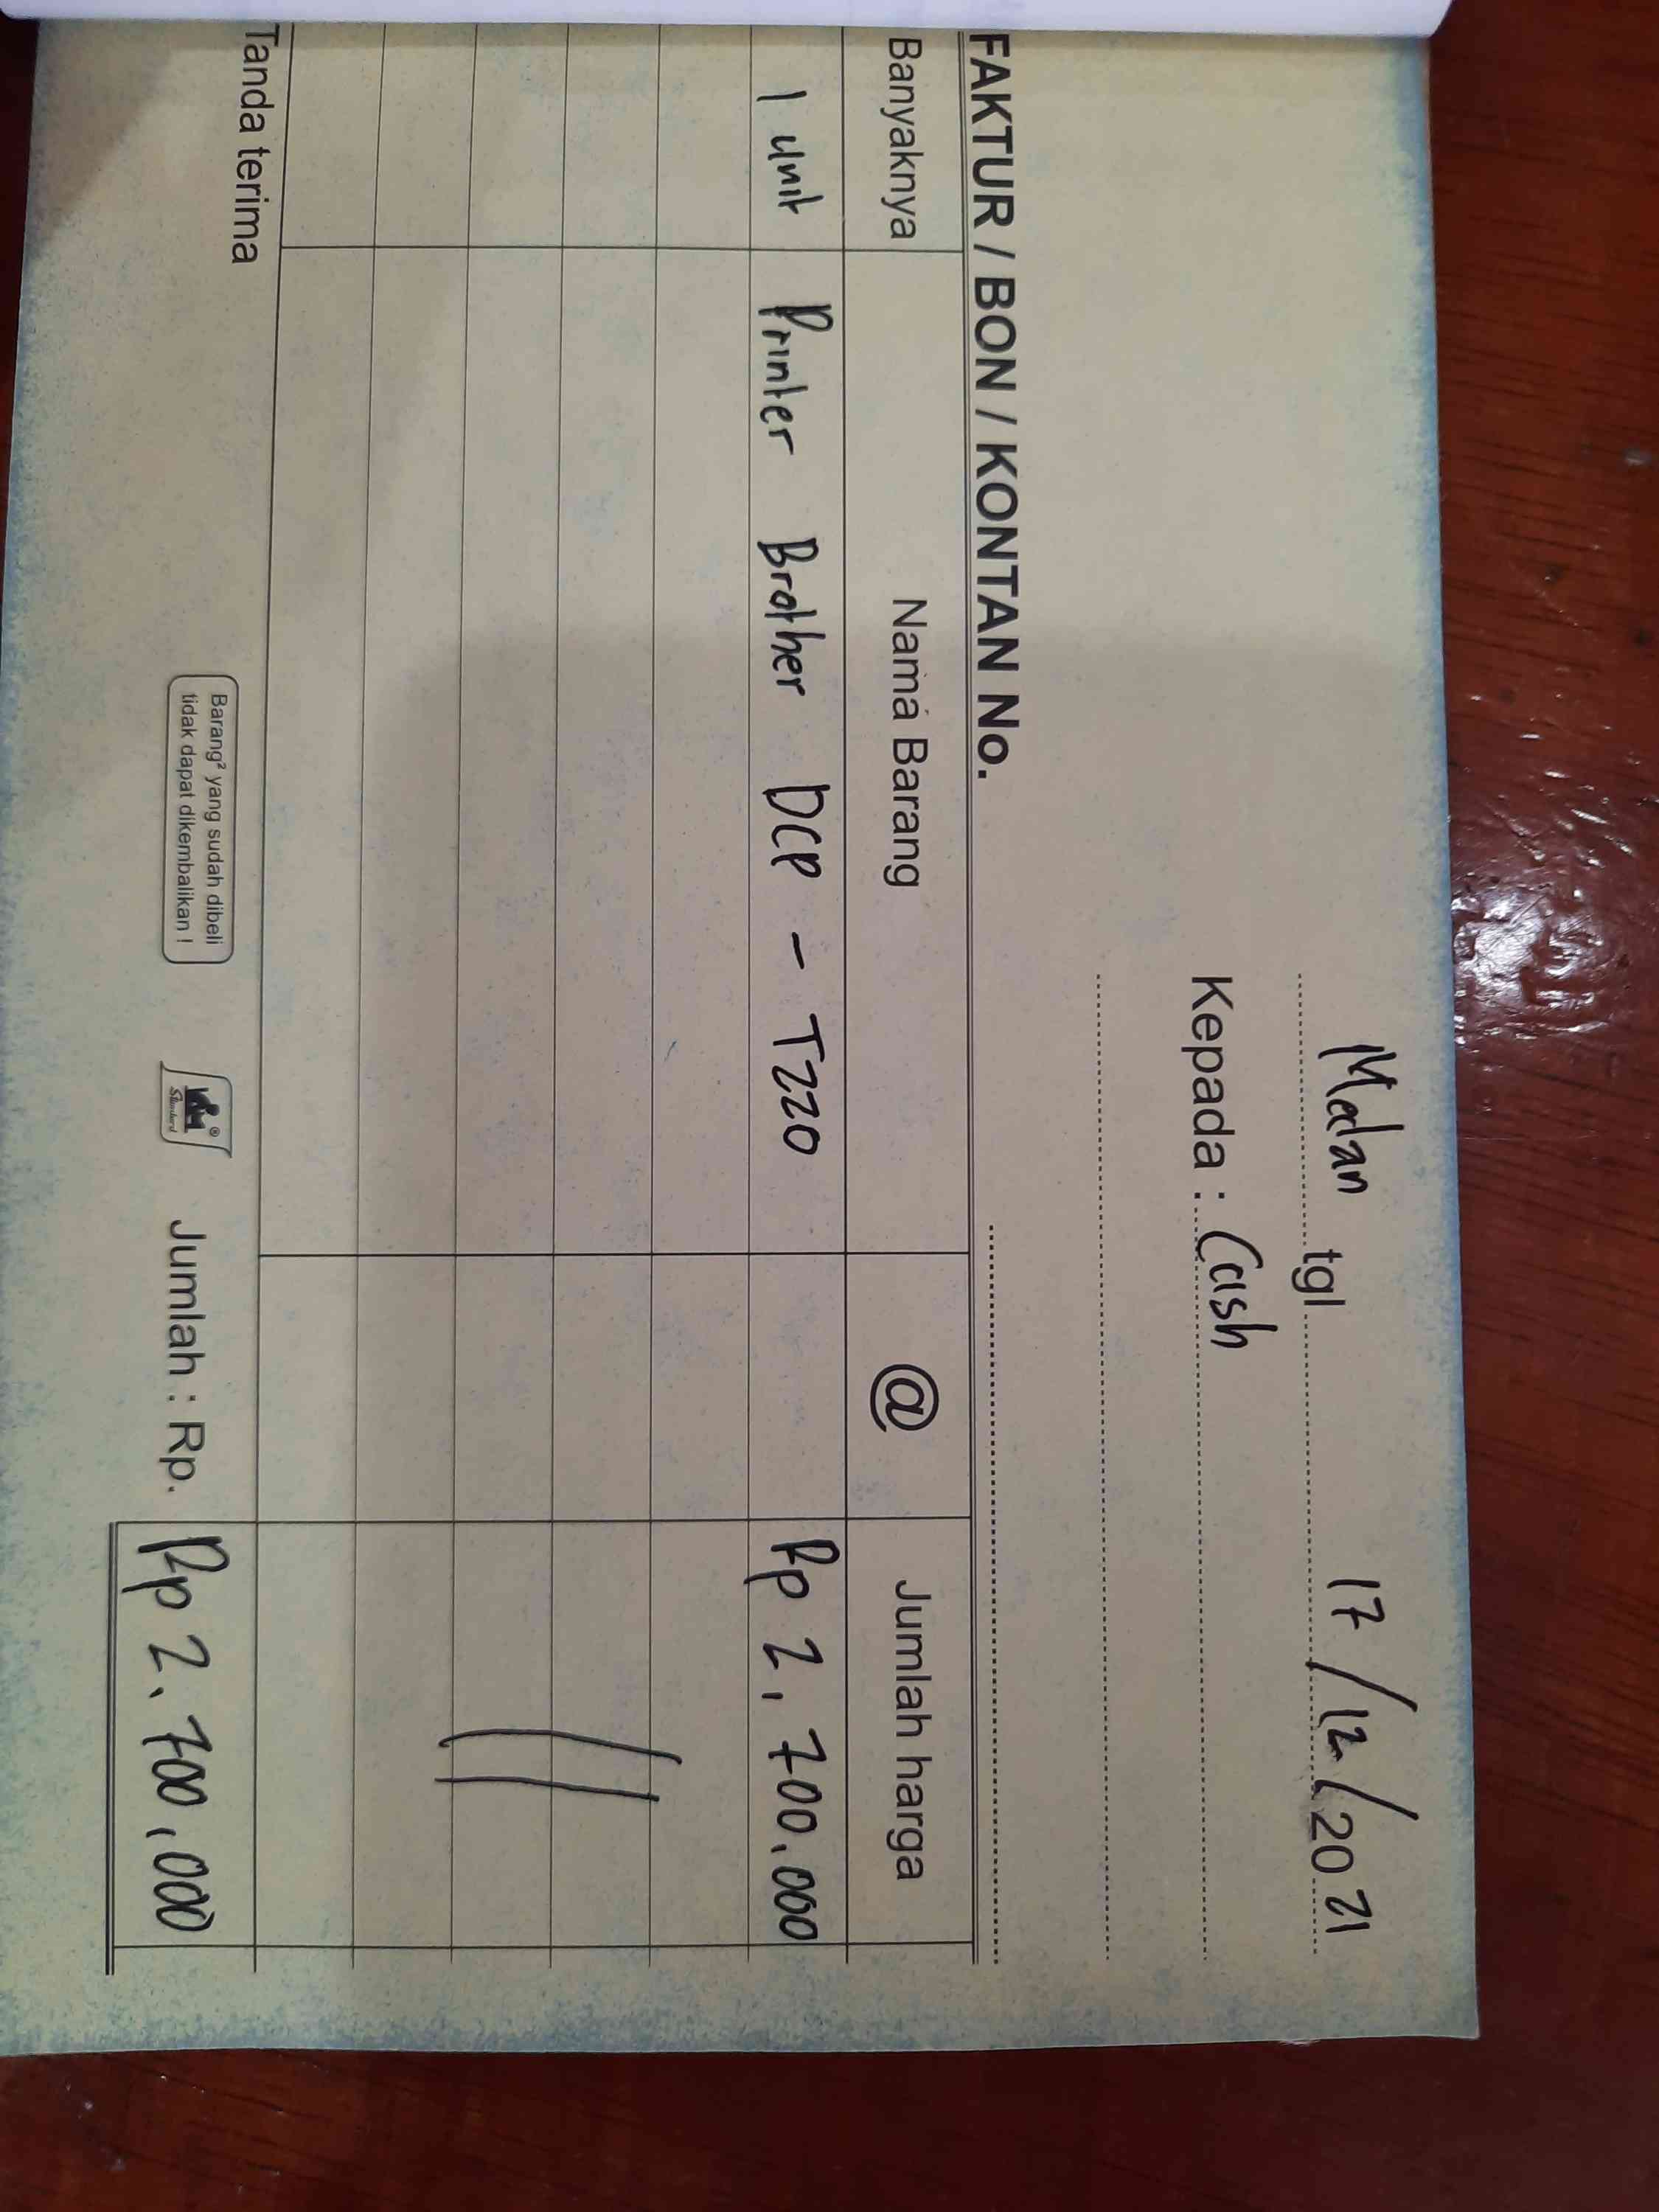 Medan tgl 17/12/2021
Kepada : Cash
FAKTUR / BON / KONTAN No.
Banyaknya Nama Barang @ Jumlah harga
1 unit Printer Brother DCP - T220 Rp 2.700.000
Tanda terima
Barang² yang sudah dibeli
tidak dapat dikembalikan !
Jumlah : Rp. Rp 2.700.000